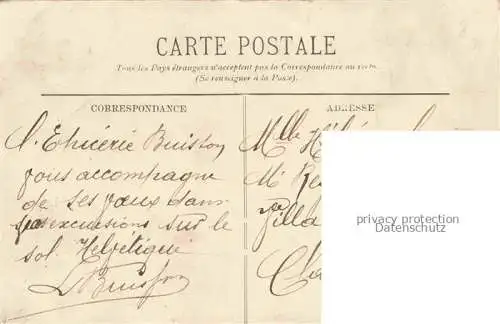 CARTE POSTALE
Tous les Pays étrangers n'acceptent pas la Correspondance au recto
(Se renseigner à la Poste).
CORRESPONDANCE
L'Epicerie Buisson
vous accompagne
de ses vœux dans
excursions sur le
sol Helvétique
L Buisson
ADRESSE
Mlle
Mr
Villa
privacy protection
Datenschutz